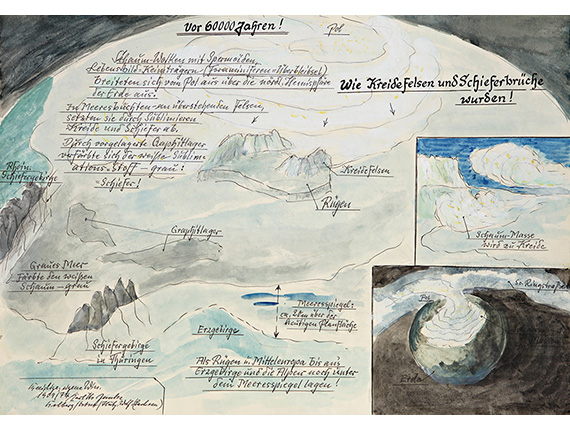 Vor 60000 Jahren!
Pol
Schaum-Wolken mit Spermoiden,
Lebensbild-Keimträgern (Foraminiferen-Überbleibsel)
breiteten sich vom Pol aus über die nördl. Hemisphäre
der Erde aus!
In Meeresbuchten an überstehenden Felsen,
setzten sie durch Sublimieren
Kreide und Schiefer ab.
Durch vorgelagerte Graphitlager
verfärbte sich der weiße Sublim-
ations-Stoff - grau!
- Schiefer!
Wie Kreidefelsen und Schieferbrüche
wurden!
Rhein.
Schiefergebirge
Kreidefelsen
Rügen
Graphitlager
Schaum-Masse
wird zu Kreide
Graues Meer
färbte den weißen
Schaum - grau
Schiefergebirge
in Thüringen
Erzgebirge
Meeresspiegel:
ca.
über der
heutigen
Als Rügen u. Mitteleuropa bis auf
Erzgebirge und die Alpen noch unter
dem Meeresspiegel lagen!
Pol
Ringstraße
Erde